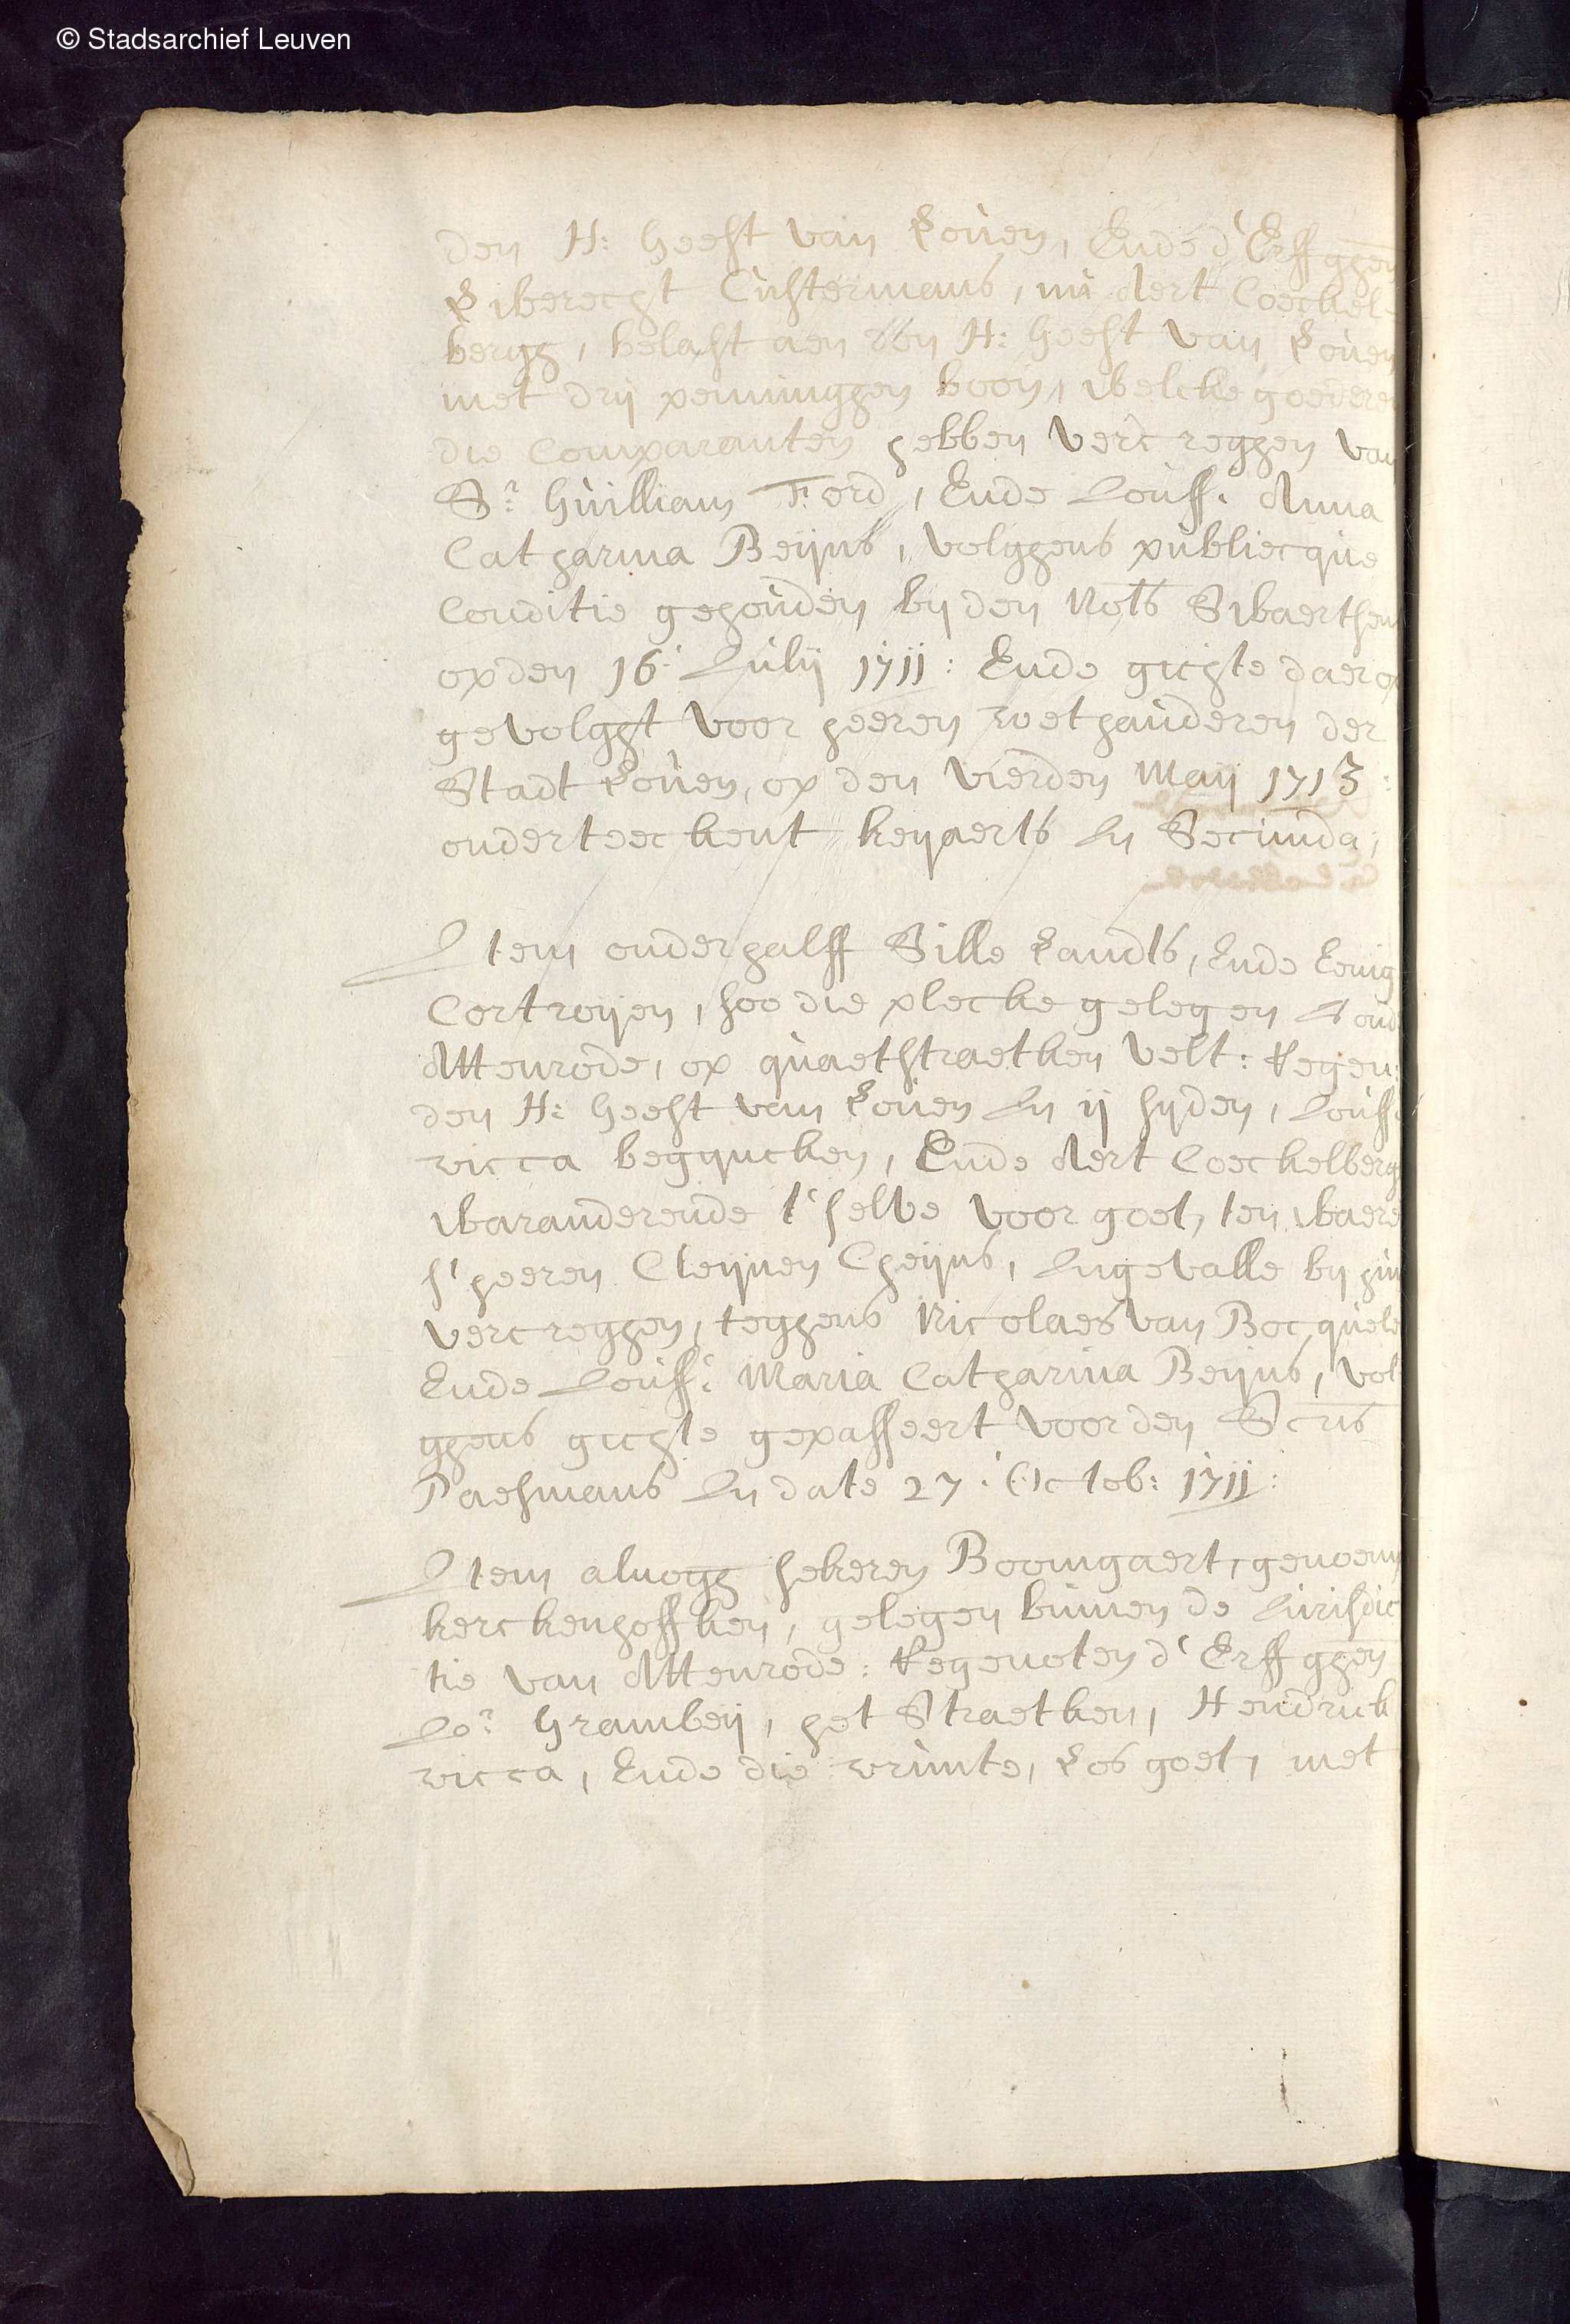 © Stadsarchief Leuven
den H: Geest van Loven, Ende d'Erffghen
Liberecht Custermans, nu Aert Coeckel-
bergh, belast aen den H: Geest van Loven
met drij penninghen boon, welcke goedere
die Comparanten hebben vercreghen van
Sr. Guilliam Ferd, Ende Jouff. Anna
Catharina Beijns, volghens publiecque
Conditie gehouden bij den Nots Swaerthen
op den 16: Julij 1711: Ende gichte daer op
gevolght voor heeren wethauderen der
Stadt Loven, op den vierden Maij 1713:
onderteeckent keijaerts In Secunda,
Item onderhalff Sille Landts, Ende Eenig
Cortroijen, soo die plecke gelegen Iond
Attenrode, op quaethstraetken velt: Regen:
den H: Geest van Loven In ij sijden, Jouff
vicca begijncken, Ende Aert Coeckelberg
waranderende t'selve voor goet, ten waere
s'heeren Cleijnen Cheijns, Ingevalle bij hun
vercreghen, teghens Nicolaes van Bocquele
Ende Jouff: Maria Catharina Beijns, vol
ghens gichte gepasseert voor den Scris
Paesmans In date 27: Octob: 1711:
Item alnogh sekeren Boomgaert, genoemt
kerckenhoffken, gelegen binnen de Jurisdic
tie van Attenrode: Regenoten d'Erffghen
Jor. Grambeij, het Straetken, Hendrick
vicca, Ende die vrunte, Los goet, met